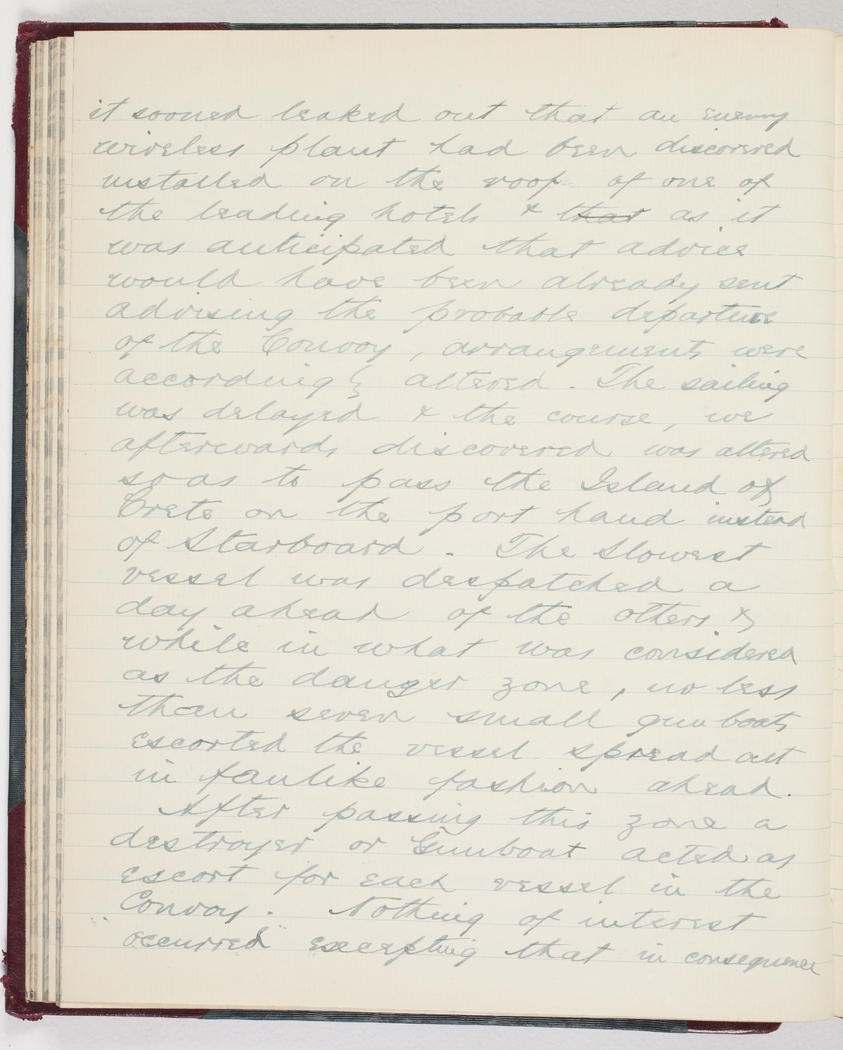 it sooned leaked out that an enemy
wireless plant had been discovered
installed on the roof of one of
the leading hotels & that as it
was anticipated that advice
would have been already sent
advising the probable departure
of the Convoy, arrangements were
accordingly altered. The sailing
was delayed & the course, we
afterwards discovered was altered
so as to pass the Island of
Crete on the port hand instead
of Starboard. The Slowest
vessel was despatched a
day ahead of the others &
while in what was considered
as the danger zone, no less
than seven small gunboats
escorted the vessel spread out
in fanlike fashion ahead.
After passing this zone a
destroyer or Gunboat acted as
escort for each vessel in the
Convoy. Nothing of interest
"occurred" excepting that in consequence